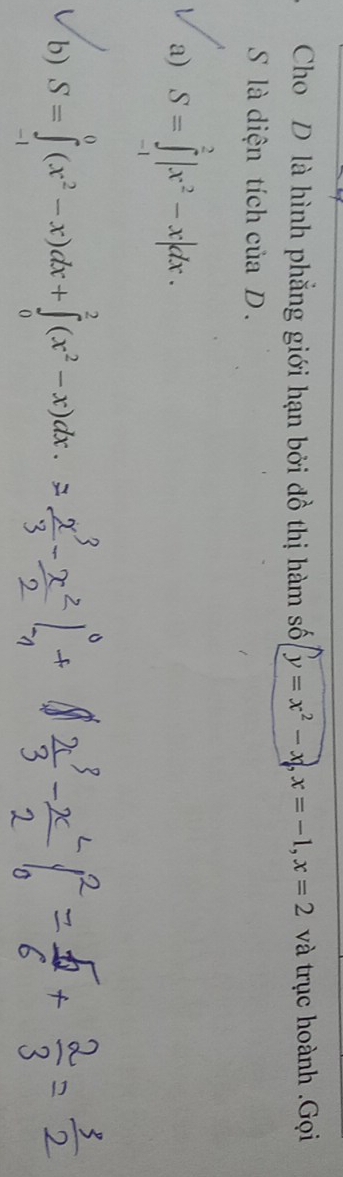 Cho D là hình phẳng giới hạn bởi đồ thị hàm số y = x² − x, x = −1, x = 2 và trục hoành .Gọi
S là diện tích của D.
a) S = ∫_{-1}^{2} |x² − x|dx.
b) S = ∫_{-1}^{0} (x² − x)dx + ∫_{0}^{2} (x² − x)dx. = x³/3 − x²/2 |_{-1}^{0} + x³/3 − x²/2 |_{0}^{2} = 5/6 + 2/3 = 3/2